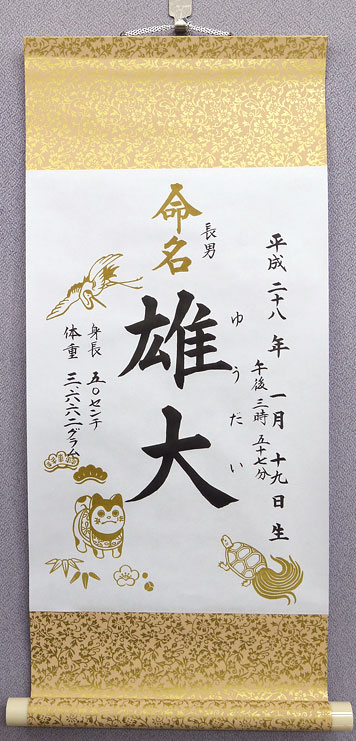 平成二十八年一月十九日生
午後三時五十七分
命名
長男
雄大
ゆうだい
身長 五〇センチ
体重 三、六六二グラム